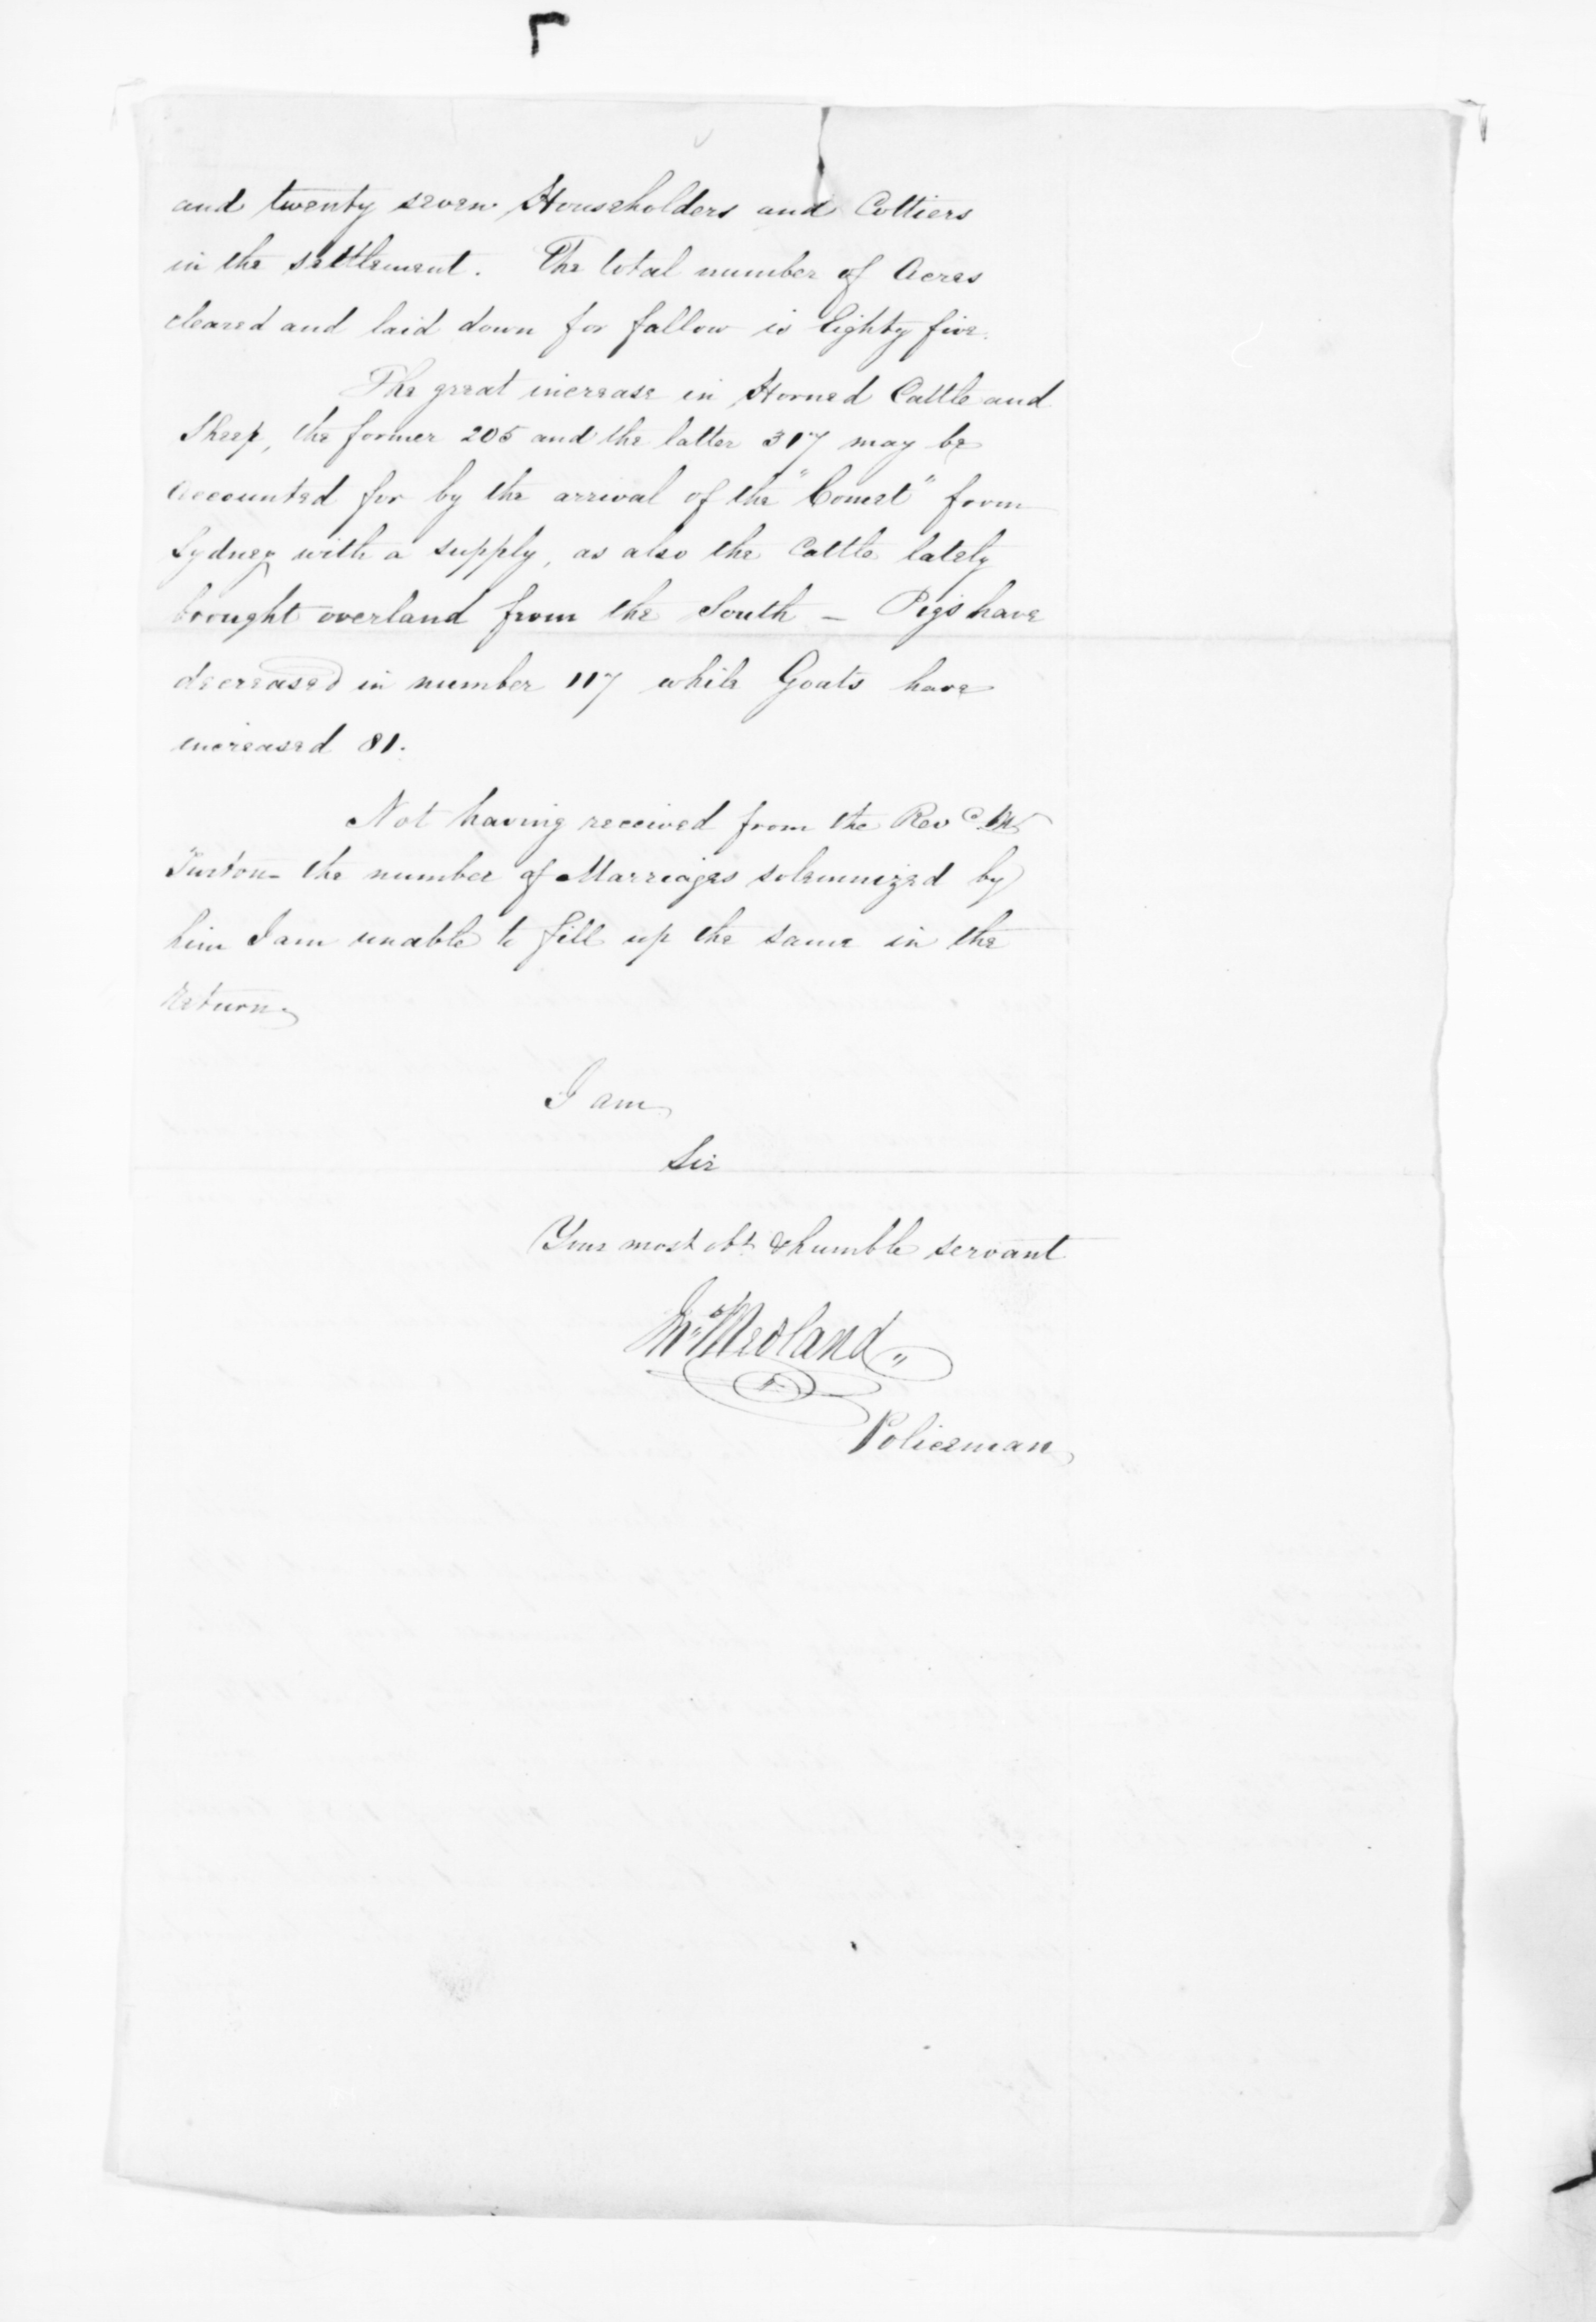 and twenty seven Householders and Cottiers
in the settlement. The total number of Acres
cleared and laid down for fallow is Eighty five.
The great increase in Horned Cattle and
Sheep, the former 205 and the latter 317 may be
accounted for by the arrival of the "Comet" from
Sydney with a supply, as also the Cattle lately
brought overland from the South – Pigs have
decreased in number 117 while Goats have
increased 81.
Not having received from the Revd Mr
Turton – the number of Marriages solemnized by
him I am unable to fill up the same in the
return.
I am
Sir
Your most obt & humble servant
Medland
Policeman